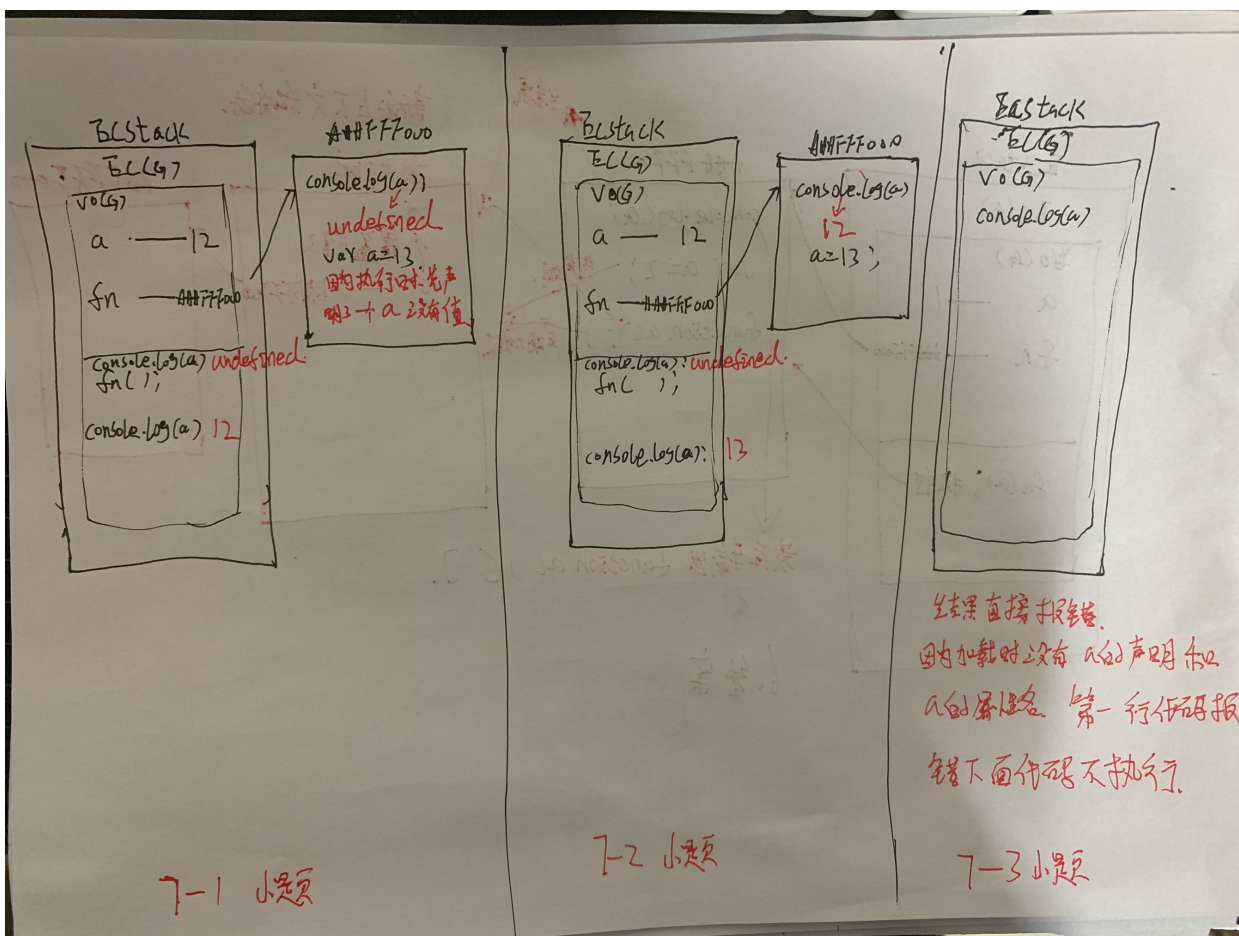 ECStack
EC(G)
VO(G)
a 12
fn AAAFFF000
console.log(a) undefined.
fn( );
console.log(a) 12
AAAFFF000
console.log(a);
undefined
var a=13
因为执行时先声
明了一个a没有值
7-1 小题
ECStack
EC(G)
VO(G)
a 12
fn AAAFFF000
console.log(a): undefined.
fn( );
console.log(a): 13
AAAFFF000
console.log(a)
12
a=13;
7-2 小题
EC(G)
VO(G)
console.log(a)
结果直接报错.
因为加载时没有a的声明和
a的属性名. 第一行代码报
错下面代码不执行.
7-3小题